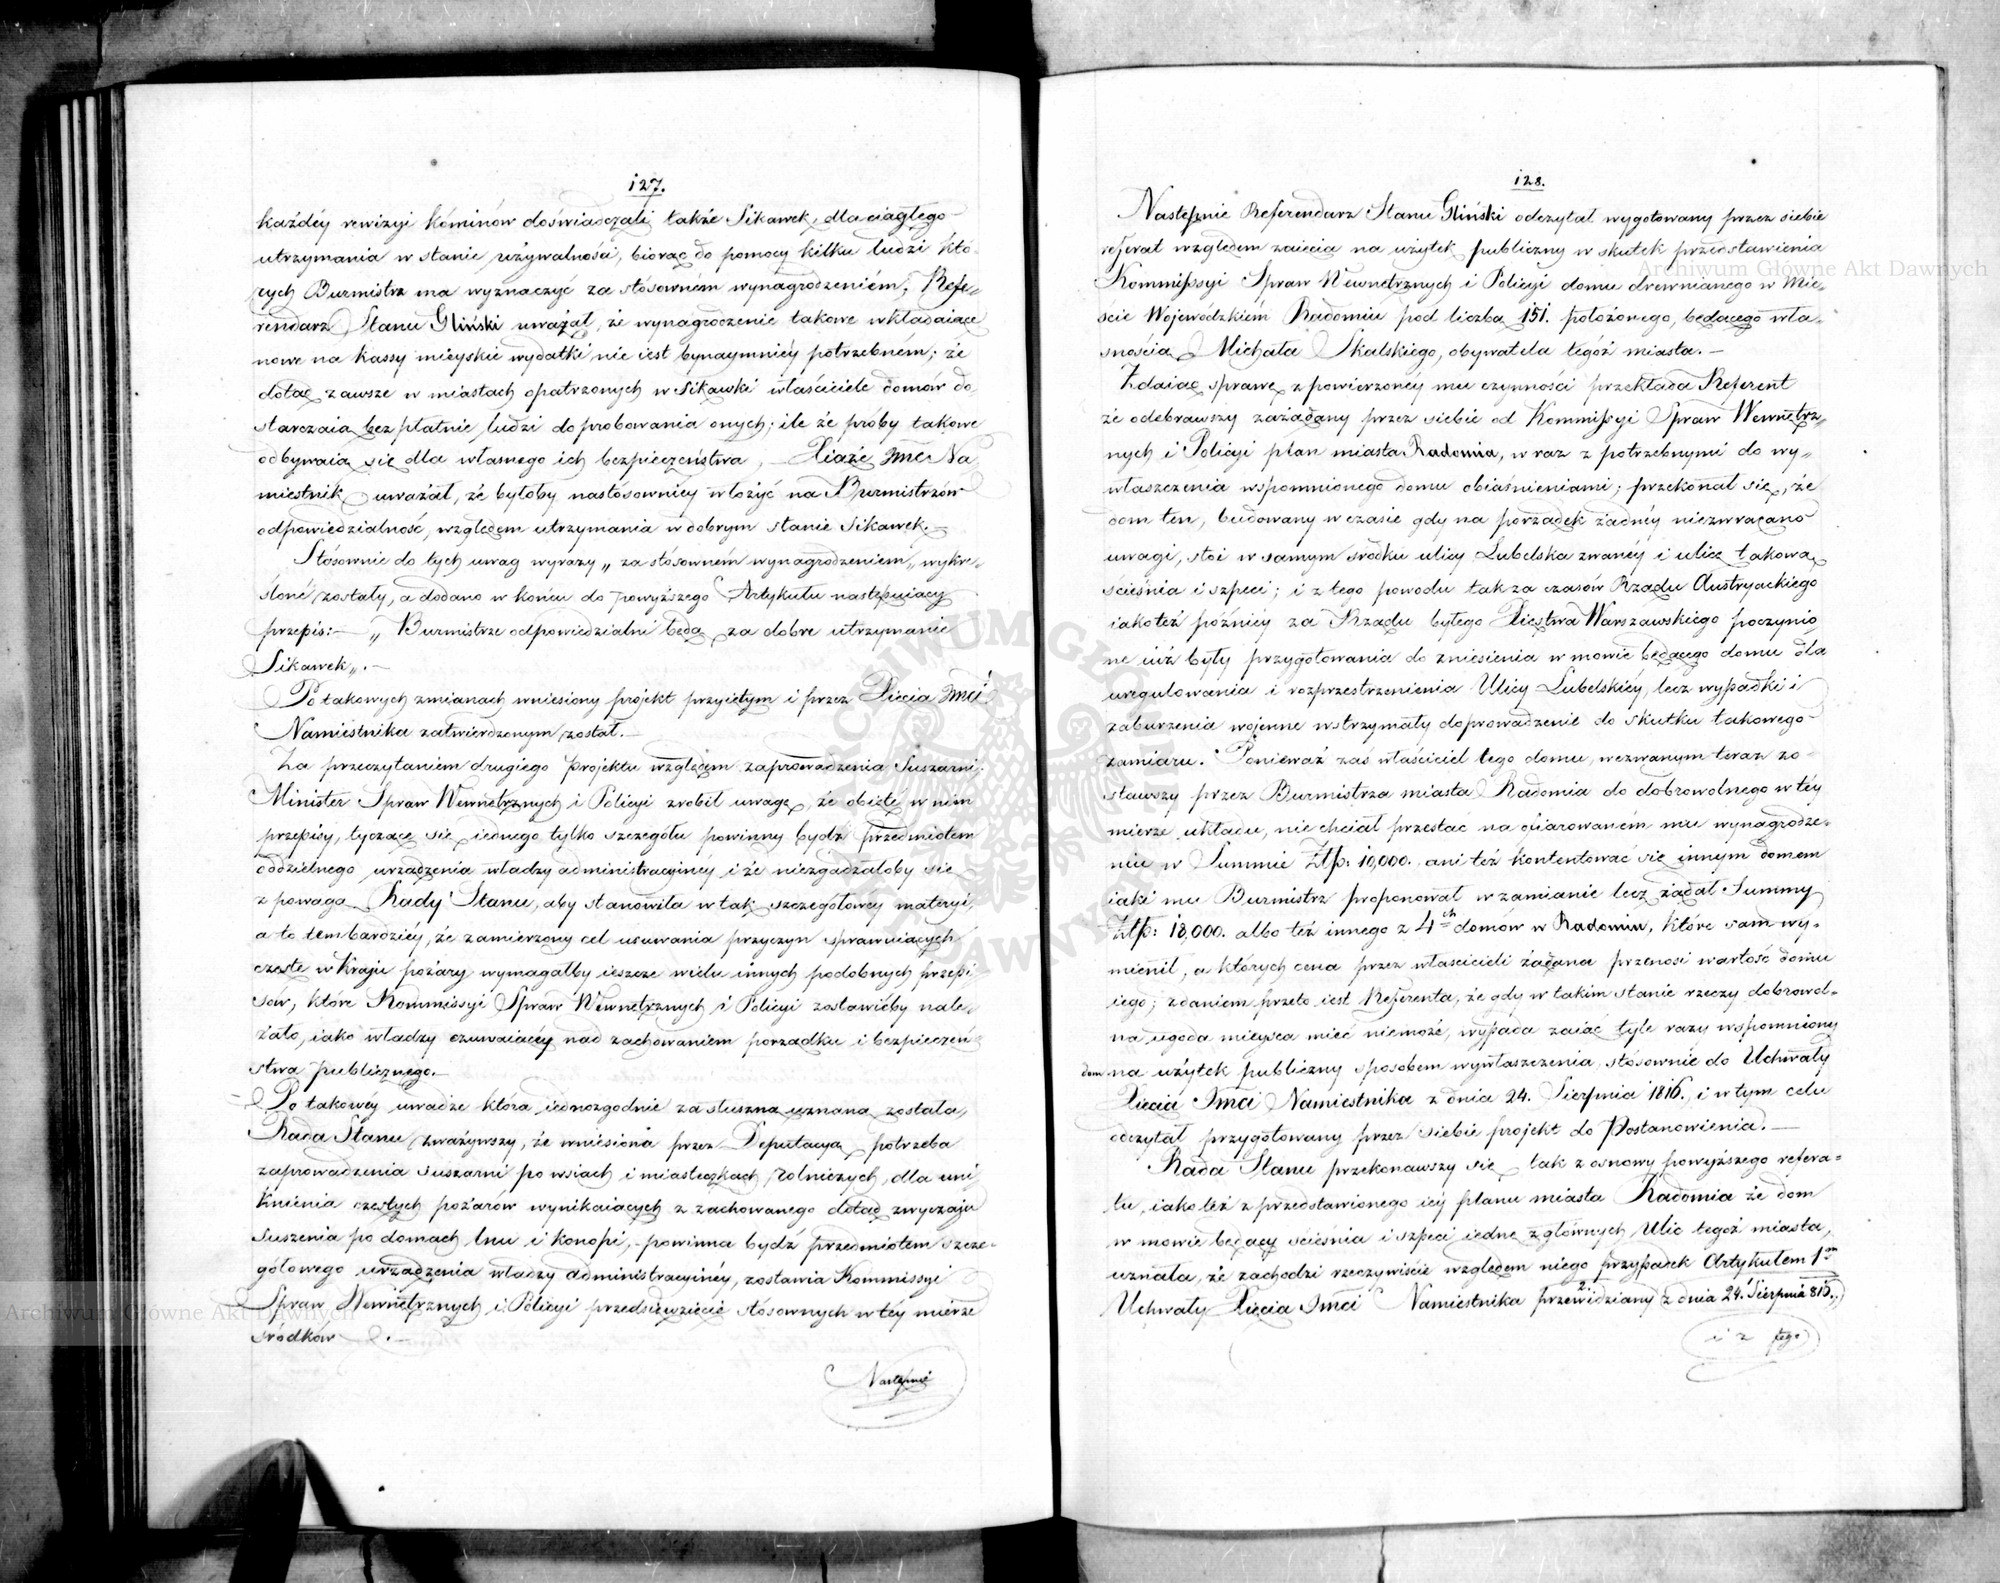 127.
każdéy rewizyi kóminów doświadczali także Sikawek, dla ciągłego
utrzymania w stanie używalności, biorąc do pomocy kilku ludzi któ-
rych Burmistrz ma wyznaczyć za stósowném wynagrodzeniem; Refe-
rendarz Stanu Gliński uważał, że wynagrodzenie takowe wkładaiące
nowe na kassy mieyskie wydatki nie iest bynaymniéy potrzebnem; że
dotąd zawsze w miastach opatrzonych w Sikawki właściciele domów do
starczaią bezpłatnie ludzi do probowania onych; ile że próby takowe
odbywaią się dla własnego ich bezpieczeństwa, — Xiąże Jmć Na
miestnik uważał, że byłoby nastósowniéy włożyć na Burmistrzów
odpowiedzialność, względem utrzymania w dobrym stanie Sikawek. —
Stósownie do tych uwag wyrazy „za stósowném wynagrodzeniem„ wykre-
ślone zostały, a dodano w końcu do powyższego Artykułu nastepuiący
przepis: — „Burmistrze odpowiedzialni będą za dobre utrzymanie
Sikawek„. —
Po takowych zmianach wniesiony projekt przyiętym i przez Xięcia Jmci
Namiestnika zatwierdzonym został. —
Za przeczytaniem drugiego Projektu względem zaprowadzenia Suszarni;
Minister Spraw Wewnętrznych i Policyi zrobił uwagę, że obięte w nim
przepisy, tyczące się iednego tylko szczegółu powinny bydź przedmiotem
oddzielnego urządzenia władzy administracyinéy i że niezgadzałoby się
z powagą Rady Stanu, aby stanowiła w tak szczegółowéy materyi,
a to tem bardziéy, że zamierzony cel usuwania przyczyn sprawuiących
częste w Kraju pożary wymagałby ieszcze wielu innych podobnych przepi-
sów, które Kommissyi Spraw Wewnętrznych i Policyi zostawićby nale-
żało, iako władzy czuwaiącéy nad zachowaniem porządku i bezpieczeń-
stwa publicznego. —
Po takowéy uwadze która iednozgodnie za słuszną uznana została,
Rada Stanu zważywszy, że wniesiona przez Deputacyą potrzeba
zaprowadzenia suszarni po wsiach i miasteczkach rolniczych, dla uni
knienia częstych pożarów wynikaiących z zachowanego dotąd zwyczaju
suszenia po domach lnu i konopi, powinna bydź przedmiotem szcze-
gółowego urządzenia władzy administracyinéy, zostawia Kommissyi
Spraw Wewnętrznych i Policyi przedsięwzięcie stósownych w téy mierze
środków. —
Następnie
128.
Następnie Referendarz Stanu Gliński odczytał wygotowany przez siebie
referat względem zaięcia na użytek publiczny w skutek przedstawienia
Kommissyi Spraw Wewnętrznych i Policyi domu drewnianego w Mie-
ście Wojewódzkiém Radomiu pod liczbą 151. położonego, będącego wła-
snością Michała Skalskiego, obywatela tegóż miasta. —
Zdaiąc sprawę z powierzonéy mu czynności przekłada Referent
że odebrawszy zażądany przez siebie od Kommissyi Spraw Wewnętrz-
nych i Policyi plan miasta Radomia, wraz z potrzebnymi do wy-
właszczenia wspomnionego domu obiaśnieniami; przekonał się, że
dom ten, budowany w czasie gdy na porządek żadnéy niezwracano
uwagi, stoi w samym srodku ulicy Lubelska zwanéy i ulicę takową
ścieśnia i szpeci; i z tego powodu tak za czasów Rządu Austryackiego
iakoteż późniéy za Rządu byłego Xięstwa Warszawskiego poczynio
ne iuż były przygotowania do zniesienia w mowie będącego domu dla
uregulowania i rozprzestrzenienia Ulicy Lubelskiéy, lecz wypadki i
zaburzenia wojenne wstrzymały doprowadzenie do skutku takowego
zamiaru. Ponieważ zaś właściciel tego domu, wezwanym teraz zo-
stawszy przez Burmistrza miasta Radomia do dobrowolnego w téy
mierze układu, nie chciał przestać na ofiarowaném mu wynagrodze-
niu w Summie Złp: 10,000. ani też kontentować się innym domem
iaki mu Burmistrz proponował w zamianie lecz żądał Summy
Złp: 18,000. albo też innego z 4ch domów w Radomiu, które sam wy-
mienił, a których cena przez właścicieli żądana przenosi wartość domu
iego; zdaniem przeto iest Referenta, że gdy w takim stanie rzeczy dobrowol-
na ugoda mieysca mieć niemoże, wypada zaiąć tyle razy wspomniony
dom na użytek publiczny sposobem wywłaszczenia, stósownie do Uchwały
Xięcia Jmci Namiestnika z dnia 24. Sierpnia 1816., i w tym celu
odczytał przygotowany przez siebie projekt do Postanowienia. —
Rada Stanu przekonawszy się tak z osnowy powyższego refera-
tu, iako też z przedstawionego iéy planu miasta Radomia że dom
w mowie będący ścieśnia i szpeci iednę z głównych Ulic tegoż miasta,
uznała, że zachodzi rzeczywiście względem niego przypadek Artykułem 1ym
Uchwały Xięcia Jmci Namiestnika przewidziany z dnia 24. Sierpnia 816.,
i z tego
Archiwum Główne Akt Dawnych
Archiwum Główne Akt Dawnych